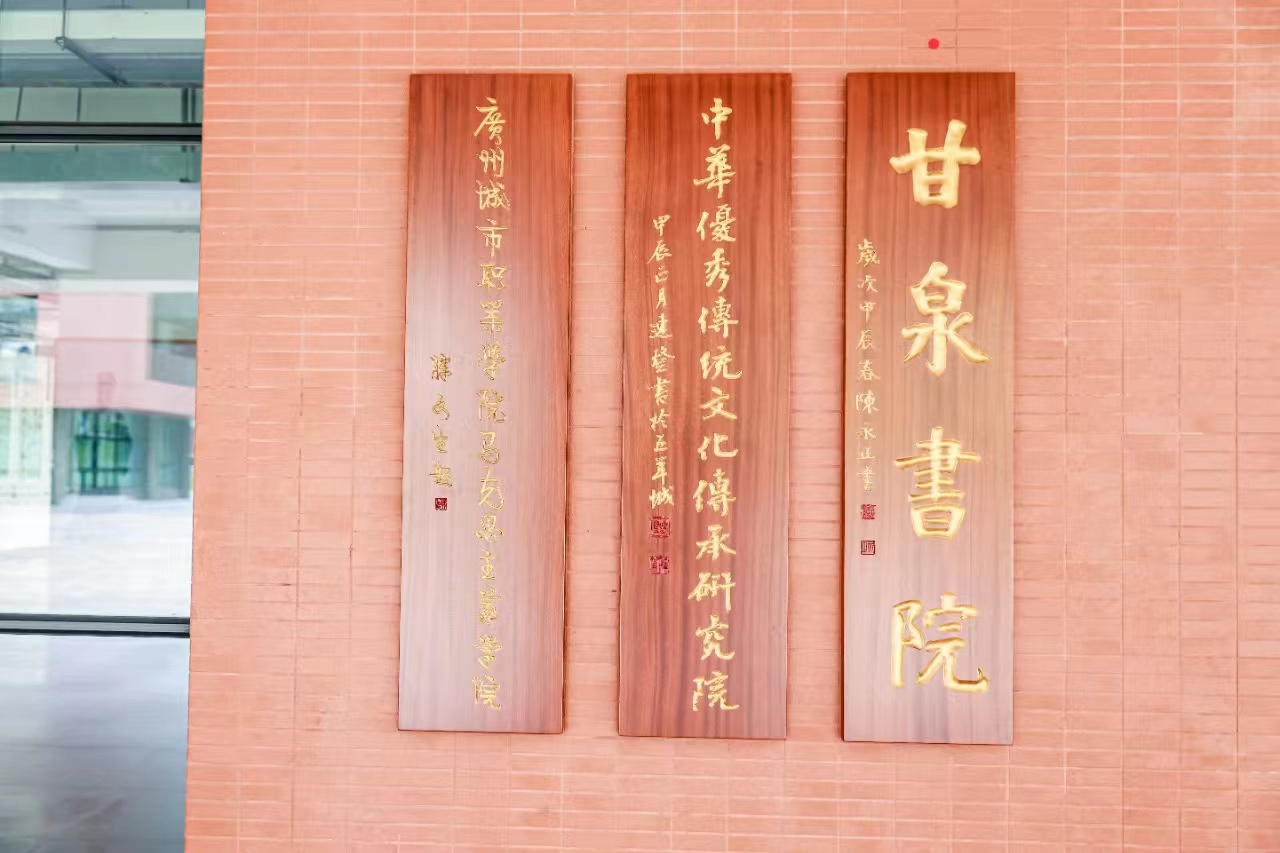 甘泉書院
歲次甲辰春陳永正書
中華優秀傳統文化傳承研究院
甲辰正月建書於五羊城
廣州城市职業學院马克思主義學院
題